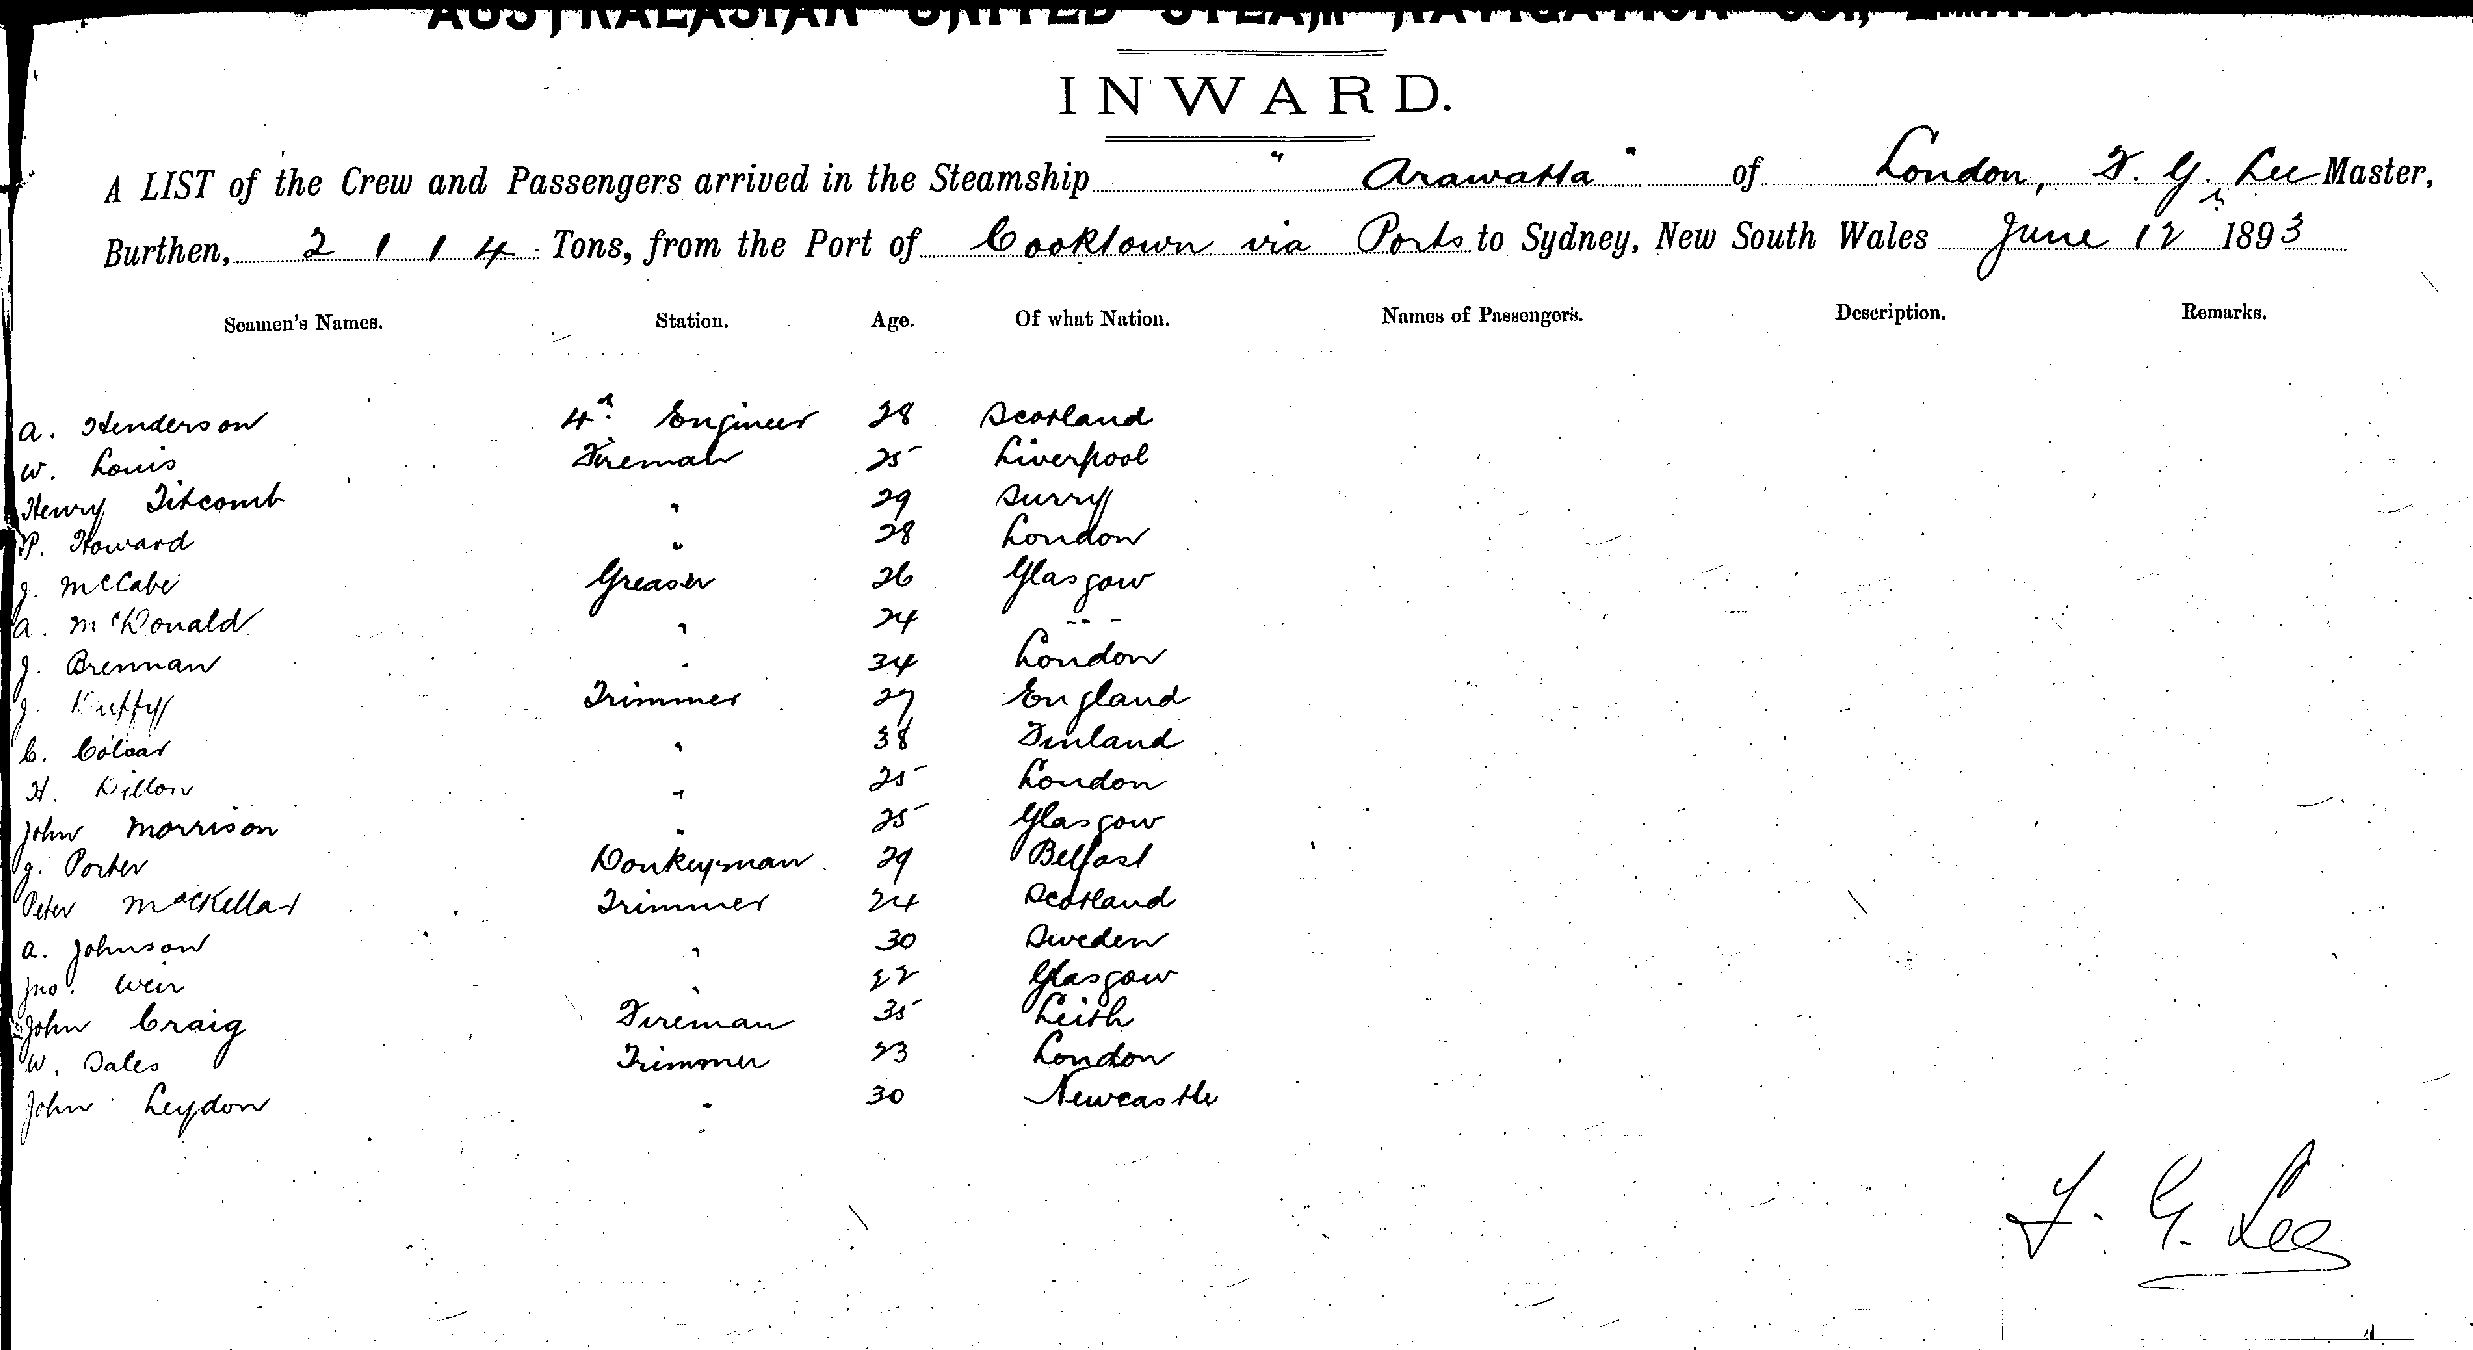 AUSTRALASIAN UNITED STEAM NAVIGATION CO., LIMITED.
INWARD.
A LIST of the Crew and Passengers arrived in the Steamship "Arawatta" of London, F. G. Lee Master,
Burthen, 2114 Tons, from the Port of Cooktown via Ports to Sydney, New South Wales June 12th 1893
Seamen's Names. Station. Age. Of what Nation. Names of Passengers. Description. Remarks.
A. Henderson 4th Engineer 28 Scotland
W. Louis Fireman 25 Liverpool
Henry Titcomb " 29 Surry
P. Howard " 28 London
J. McCabe Greaser 26 Glasgow
A. McDonald " 24 - - -
J. Brennan " 34 London
J. Duffy Trimmer 27 England
C. " 38 Finland
H. Dillon " 25 London
John Morrison " 25 Glasgow
G. Porter Donkeyman 29 Belfast
Peter McKellar Trimmer 24 Scotland
A. Johnson " 30 Sweden
Jno. Weir " 22 Glasgow
John Craig Fireman 35 Leith
W. Sales Trimmer 23 London
John Leydon " 30 Newcastle
F. G. Lee